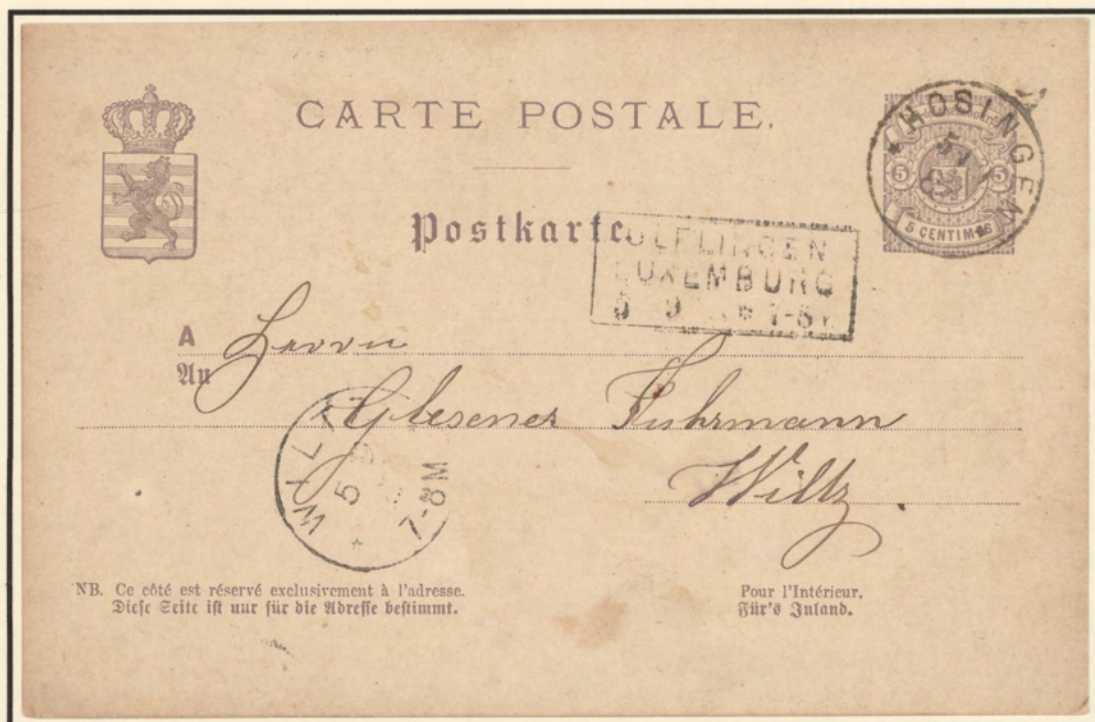 CARTE POSTALE.
HOSINGEN
5
5
5 CENTIMES
Postkarte.
ULFLINGEN
LUXEMBURG
5 9 * 1-5
A Herrn
An
Glesener Fuhrmann
Wiltz
WILTZ
5 9
7-8M
NB. Ce côté est réservé exclusivement à l'adresse.
Diese Seite ist nur für die Adresse bestimmt.
Pour l'Intérieur.
Für's Inland.